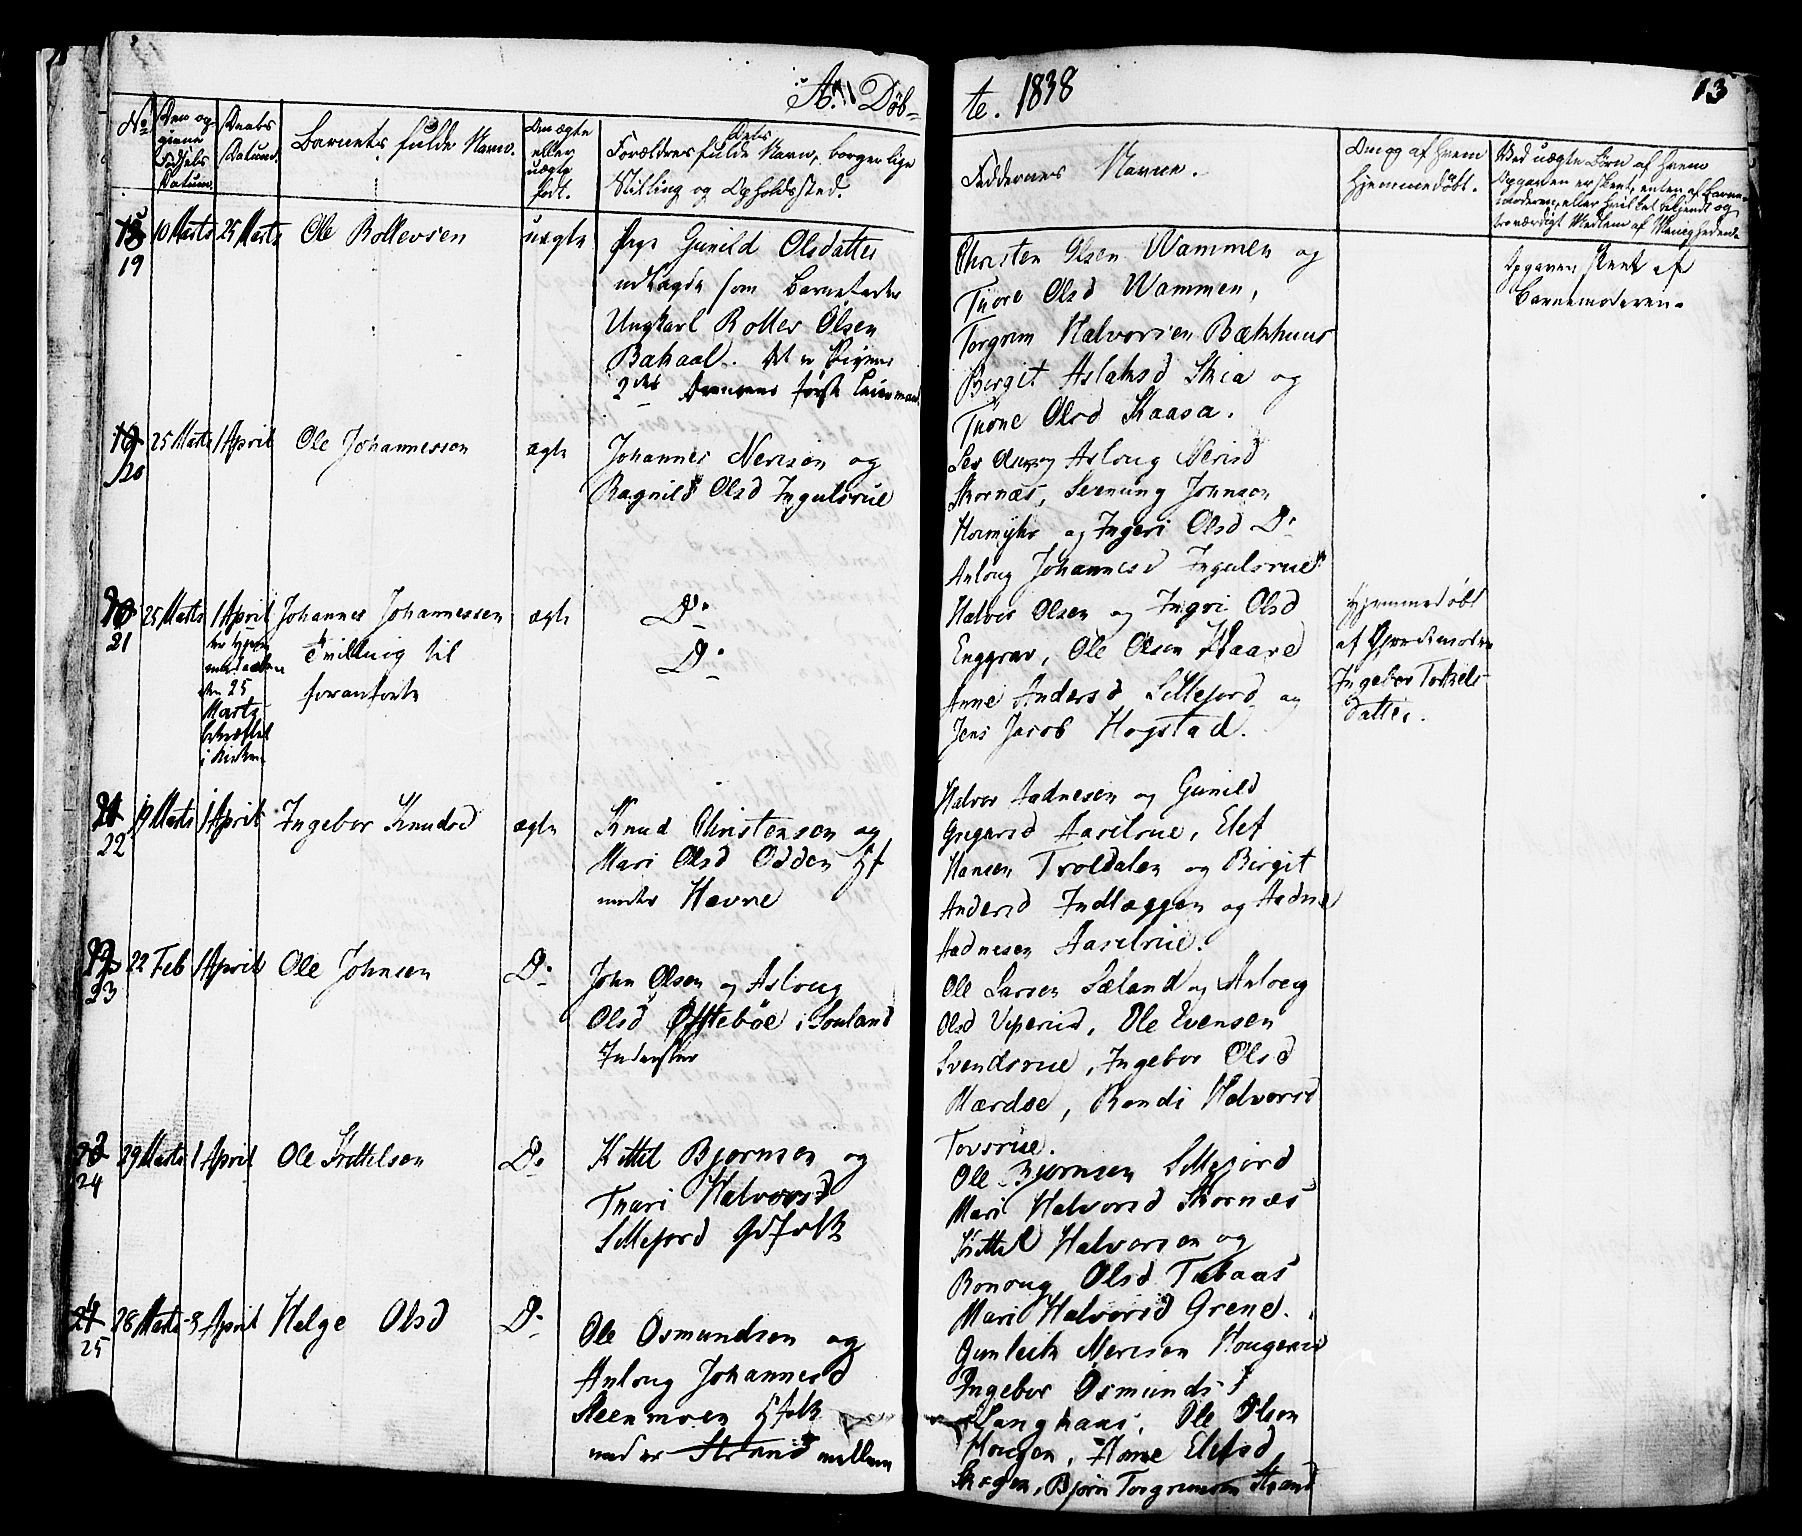 A. Døb-
te. 1838
13
No
Den og
Fødsels
Datum.
Daabs
Datum.
Barnets fulde Navn.
Om ægte
eller
uægte
født.
Forældres fulde Navn, borgerlige
Stilling og Opholdssted.
Faddernes Navne.
Om og af Hvem
Hjemmedøbt.
Ved uægte Børn af Hvem
Opgaven er skeet, enten af Barne-
moderen, eller Hvilket bekjendt og
troværdigt Medlem af Menigheden
18
19
10 Marts
25 Marts
Ole Rollevsen
uægte
Pige Gunild Olsdatter
udlagde som Barnefader
Ungkarl Rollev Olsen
Bakaal. Det er Pigens
2det Drengens første Leiermaal
Christen Olsen Wammen og
Tuore Olsd Wammen,
Torgrim Halvorsen Bækhuus
Birgit Aslaksd Skia og
Tuone Olsd Kaasa.
Opgaven skeet af
Barnemoderen.
19
20
25 Marts
1 April
Ole Johannessen
ægte
Johannes Nerison og
Ragnild Olsd Ingulsrue
Lev Olsen og Asloug Nerisd
Skornæs, Svenung Johnson
og Ingeri Olsd Do
Anloug Johannesd Ingulsrue
20
21
25 Marts
1 April
den 25
Marts
i Kirken
Johannes Johannessen
Tvilling til
foranførte
ægte
Do
Do
Halvor Olsen og Ingri Olsd
Enggrav, Ole Olsen Haave
Anne Andersd Sillejord og
Jens Jacob Hogstad.
Hjemmedøbt
af Gjordemoder
Ingebor Torkels-
datter.
21
22
19 Marts
1 April
Ingebor Knudsd
ægte
Knud Christensen og
Mari Olsd Odden Hf
under Havne
Halvor Aadnesen og Gunild
Gregarsd Aaselrue, Elef
Hansen Troldalen og Birgit
Andersd Indlæggen og Aadne
Aadnesen Aaselrue.
22
23
22 Feb
1 April
Ole Johnsen
Do
John Olsen og Asloug
Olsd Øfstebøe i Souland
Inderster
Ole Larsen Sæland og Anloug
Olsd Viperud, Ole Evensen
Svendsrue, Ingebor Olsd
Mærdse, Randi Halvorsd
Tovsrue.
23
24
29 Marts
1 April
Ole Kittelsen
Do
Kittel Bjørnsen og
Thuri Halvorsd
Sillejord Gdfolk
Ole Bjørnsen Sillejord
Mari Halvorsd Skornæs
Kittel Halvorsen og
Ronoug Olsd Tubaas
Mari Halvorsd Grene.
24
25
28 Marts
8 April
Helge Olsd
Do
Ole Osmundsen og
Anloug Johannesd
Steenmoen Hfolk
under Strand mellem
Gunleik Nerison Hougerud
Ingebor Osmundsd
Langhaas, Ole Olsen
Hougen, Anne Elefsd
Skogen, Bjørn Torgrimsen Strand